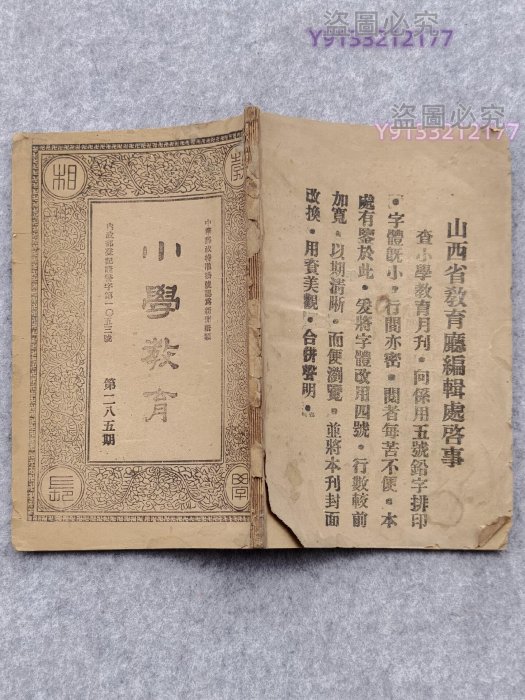 盜圖必究
Y9153212177
盜圖必究
Y9153212177
山西省教育廳編輯處啓事
查小學教育月刊・向係用五號鉛字排印
・字體既小・行間亦密・閱者每苦不便・本
處有鑒於此・爰將字體改用四號・行數較前
加寬・以期清晰・而便瀏覽・並將本刊封面
改換・用資美觀・合併聲明・
中華郵政特准掛號認爲新聞紙類
小學教育
第二八五期
內政部登記證警字第一〇五三號
相
長